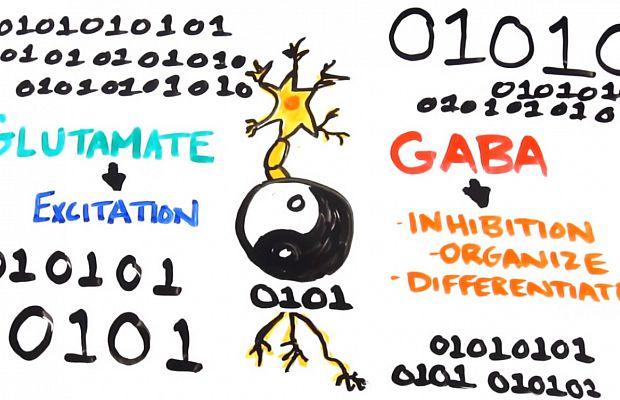 01010101010
01010 01010101
010101010101010
GLUTAMATE
EXCITATION
010101
0101
0101
01010
010101
010101010
GABA
-INHIBITION
-ORGANIZE
-DIFFERENTIATE
01010101
0101 010101